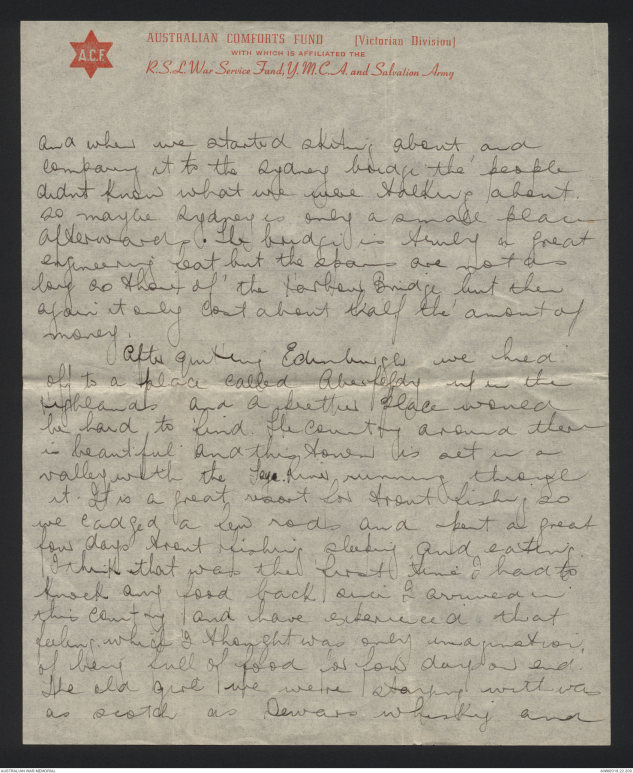 AUSTRALIAN COMFORTS FUND (Victorian Division)
A.C.F.
WITH WHICH IS AFFILIATED THE
R.S.L. War Service Fund, Y.M.C.A. and Salvation Army
and when we started skiting about and
comparing it to the Sydney bridge the people
didnt know what we were talking about.
So maybe Sydney is only a small place
afterwards. The bridge is truly a great
engineering feat but the spans are not as
long as those of the Harbour Bridge but then
again it only cost about half the amount of
money.
After quitting Edinburgh we hied
off to a place called Aberfeldy up in the
highlands and a prettier place would
be hard to find. The country around there
is beautiful and this town is set in a
valley with the Tay River running through
it. It is a great resort for trout fishing so
we cadged a few rods and spent a great
few days trout fishing sleeping and eating
I think that was the first time I had to
knock any food back since I arrived in
this country and have experienced that
feeling which I thought was only imagination,
of being full of food for four days on end.
The old girl we were staying with was
as scotch as Dewars whisky and
AUSTRALIAN WAR MEMORIAL